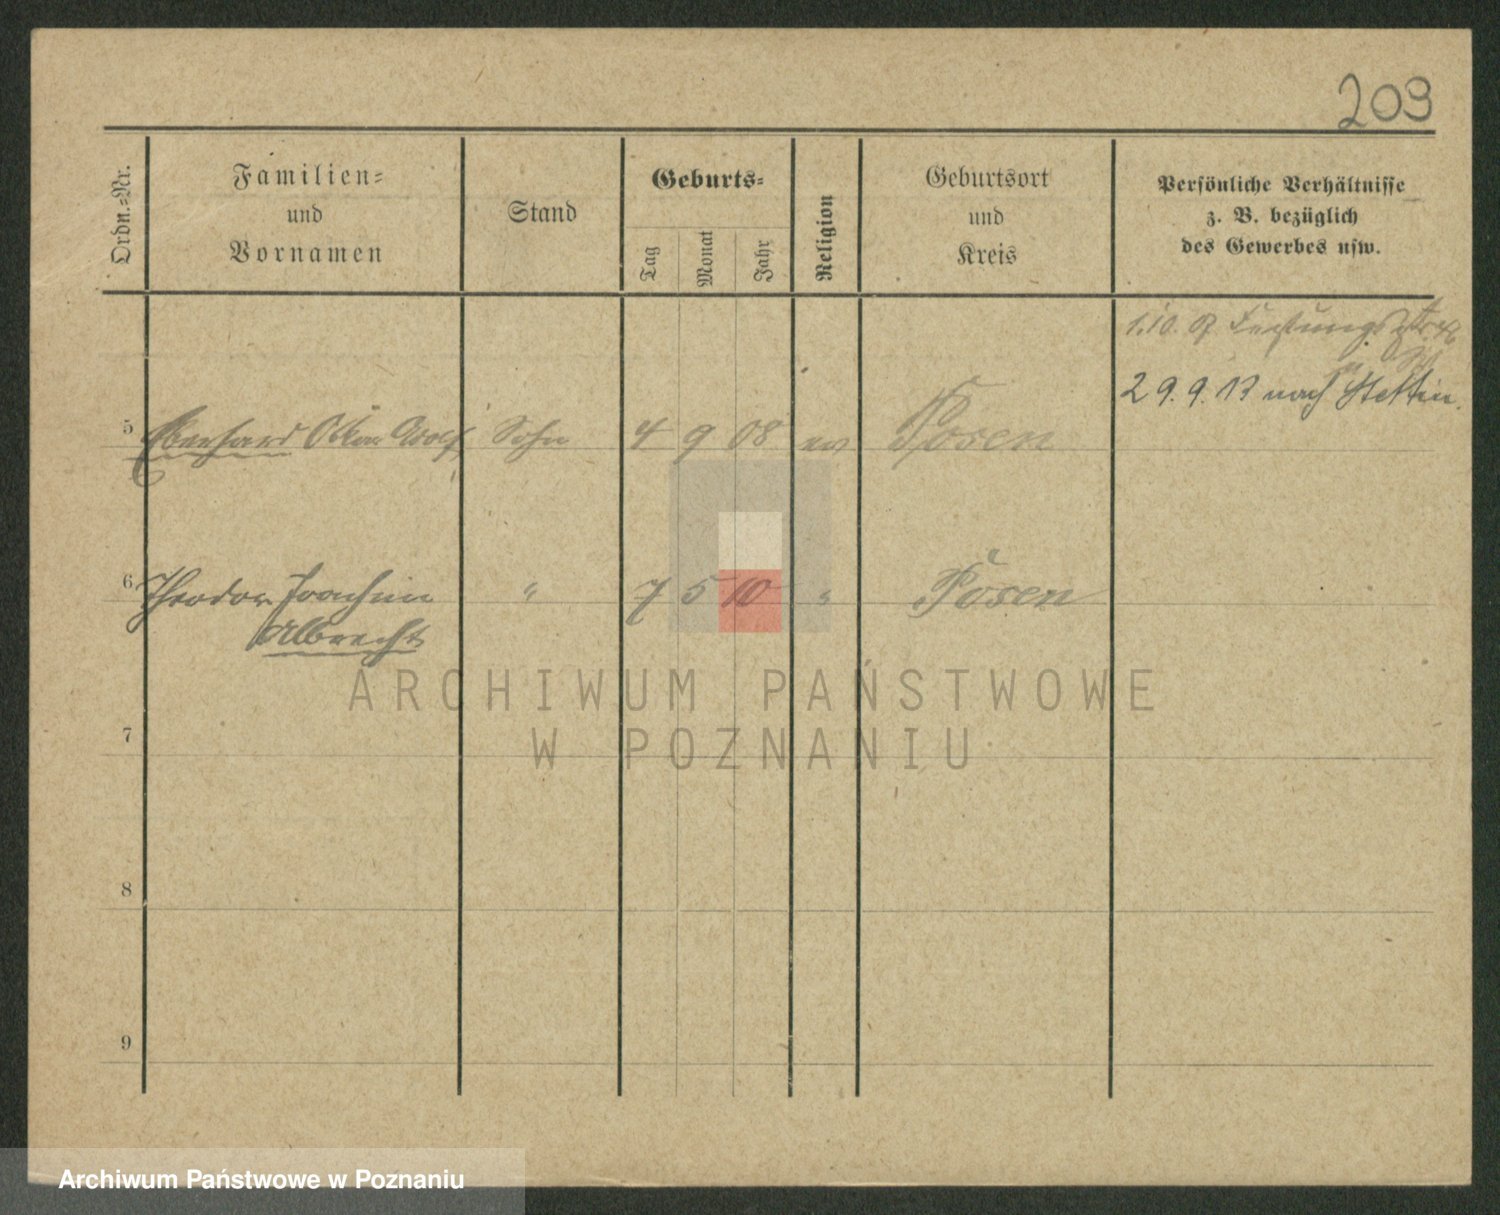 203
Ordn.-Nr.
Familien-
und
Vornamen
Stand
Geburts-
Tag
Monat
Jahr
Religion
Geburtsort
und
Kreis
Persönliche Verhältnisse
z. B. bezüglich
des Gewerbes usw.
1.10. 07
29.9.13 nach Stettin.
5 Eberhard Oskar Sohn 4 9 08 ev Posen
6 Theodor Joachim " 7 5 10 " Posen
Albrecht
7
8
9
ARCHIWUM PAŃSTWOWE
W POZNANIU
Archiwum Państwowe w Poznaniu